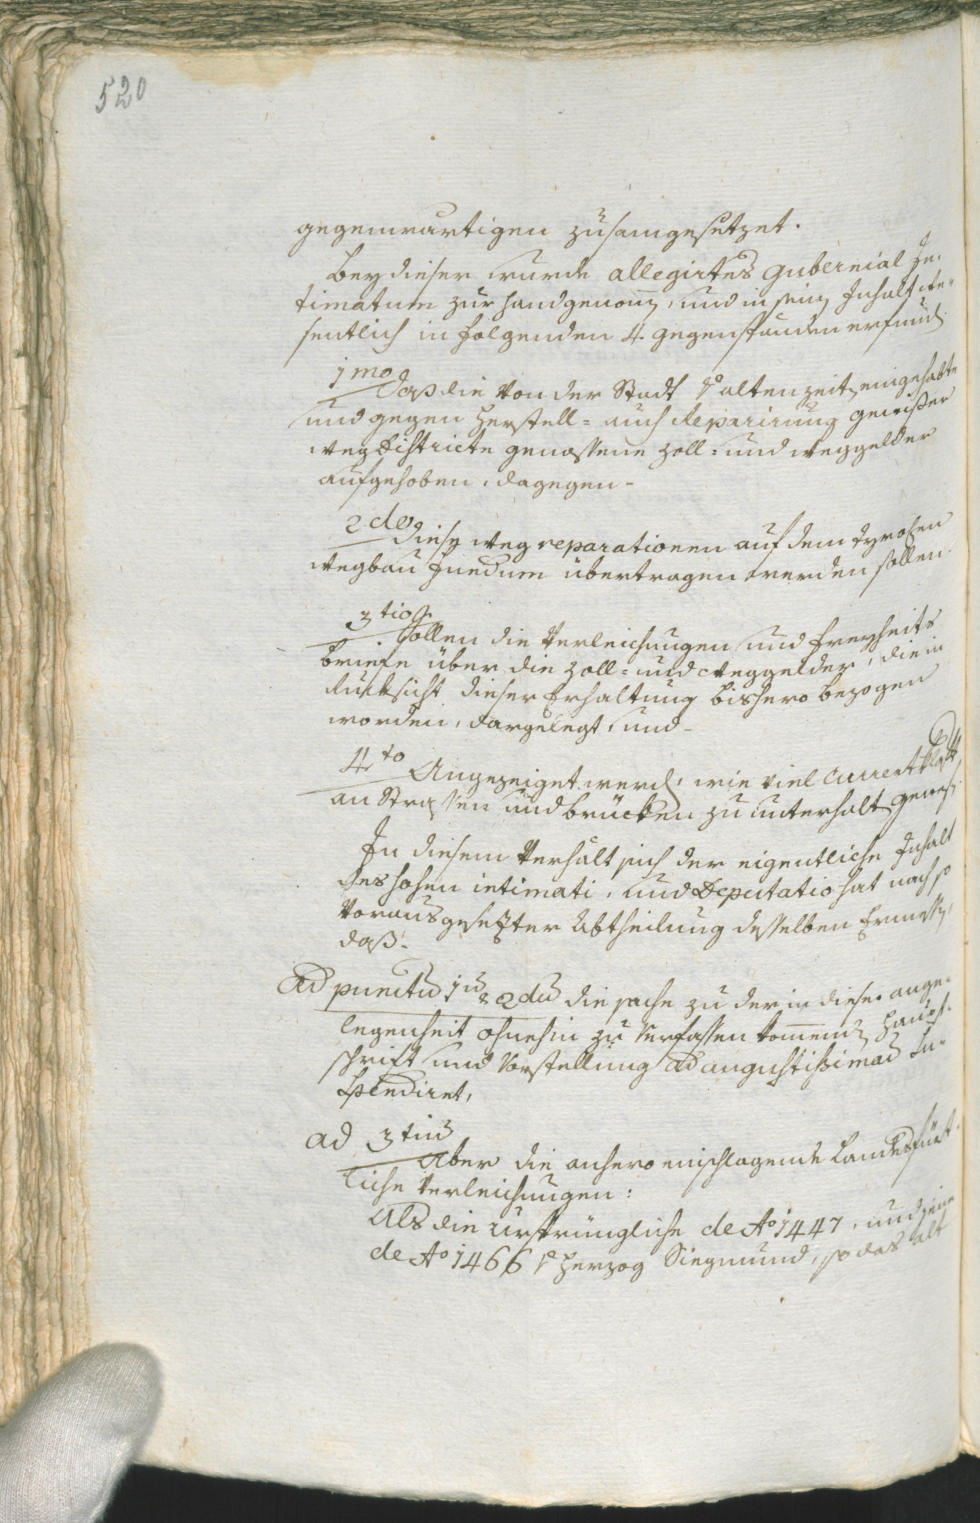 520
gegenwartigen zusamgesetzet.
Bey dieser wurde allegirtes Gubernial In-
timatum zur hand genom̅, und in sein Inhalt we-
sentlich in folgenden 4. gegenständen erfund
1mo daß die von der Stadt alten zeit eingehabte
und gegen Herstell- auch Reparirung gewißer
weg Districte genossene Zoll- und weggelder
aufgehoben, dagegen-
2do diese weg reparationen auf dem Tyrolsen
wegbau Fundum übertragen werden sollen
3tio Sollen die Verleichungen und Freyheits
Briefe über die Zoll- und weggelder, die in
Rücksicht dieser Erhaltung bishero bezogen
worden, dargelegt, und-
4to Angezeiget werd, wie viel Current Klafft
an Strassen und brücken zu unterhalt gewest
In diesem Verhält sich der eigentliche Inhalt
des hohen intimati, und Deputatio hat nach so
Vorausgesetzter Abtheilung desselben Ermess,
daß.
Ad punctu 1u & 2du die sache zu der in dieser ange-
legenheit ohnehin zu verfassen kom̅end Haupt-
schrift und Vorstellung ad augustissimam Su-
spendiret,
ad 3tiu
Aber die anhero einschlagende Landesfürst-
liche Verleichungen:
Als die ursprüngliche de Ao 1447, und eine
de Ao 1466 Herzog Siegmund, so das alt